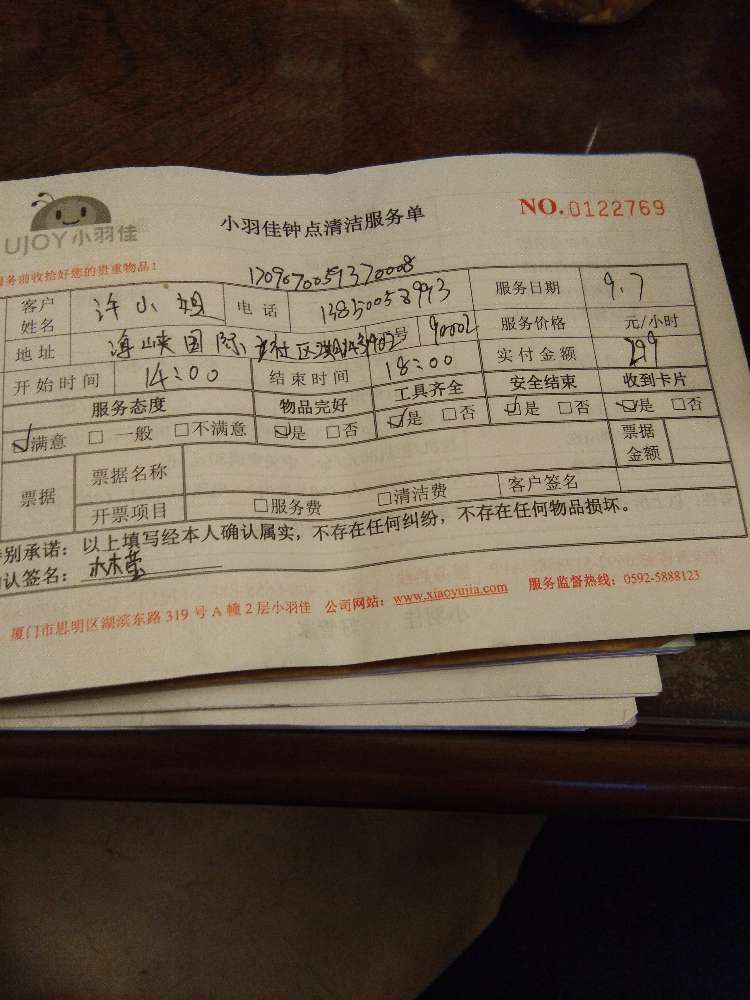 UJOY 小羽佳
小羽佳钟点清洁服务单
NO.0122769
务前收拾好您的贵重物品！
客户姓名 许小姐 电话 服务日期 9.7
地址 海峡国际 社区 服务价格 元/小时
开始时间 14:00 结束时间 18:00 实付金额 299
服务态度 物品完好 工具齐全 安全结束 收到卡片
☑满意 □一般 □不满意 ☑是 □否 ☑是 □否 ☑是 □否 ☑是 □否
票据 票据名称 票据金额
开票项目 □服务费 □清洁费 客户签名
别承诺：以上填写经本人确认属实，不存在任何纠纷，不存在任何物品损坏。
认签名：林莹
厦门市思明区湖滨东路319号A幢2层小羽佳 公司网站：www.xiaoyujia.com 服务监督热线：0592-5888123